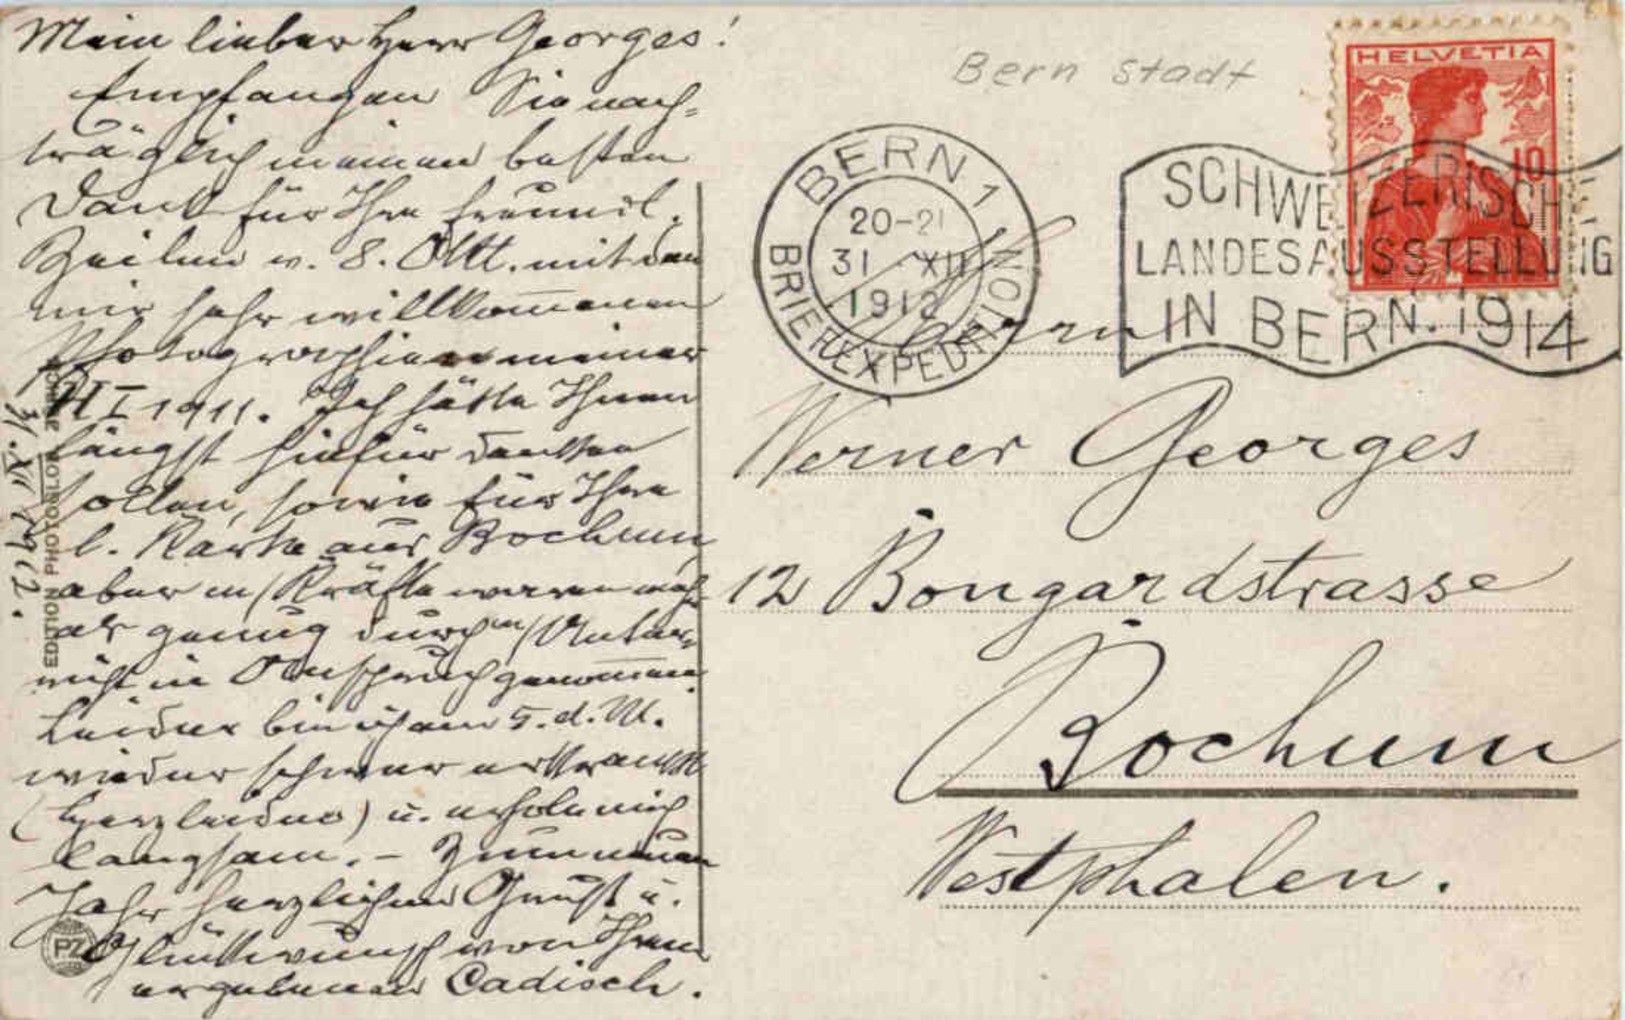 Mein lieber Herr Georges!
Empfangen Sie nach=
träglich meinen besten
Dank für Ihre freundl.
Zeilen v. 8. Okt. mit den
mir sehr willkommenen
Photographien meiner
III 1911. Ich hätte Ihnen
längst hiefür danken
sollen, sowie für Ihre
l. Karte aus Bochum
aber m/Kräfte waren mehr
als genug durch m/Unter=
richt in Anspruch genommen.
Leider bin ich am 5. d. M.
wieder schwer erkrankt
(Herzleiden) u. erhole mich
langsam. – Zum neuen
Jahr herzlichen Gruß u.
Glückwunsch von Ihrem
ergebenen Cadisch.
31. XII 1912.
EDITION PHOTOGLOB
PZ
Bern Stadt
HELVETIA
10
BERN 1
20-21
31 XII
1912
BRIEFEXPEDITION
SCHWEIZERISCHE
LANDESAUSSTELLUNG
IN BERN. 1914
Herrn
Werner Georges
12 Bongardstrasse
Bochum
Westphalen.